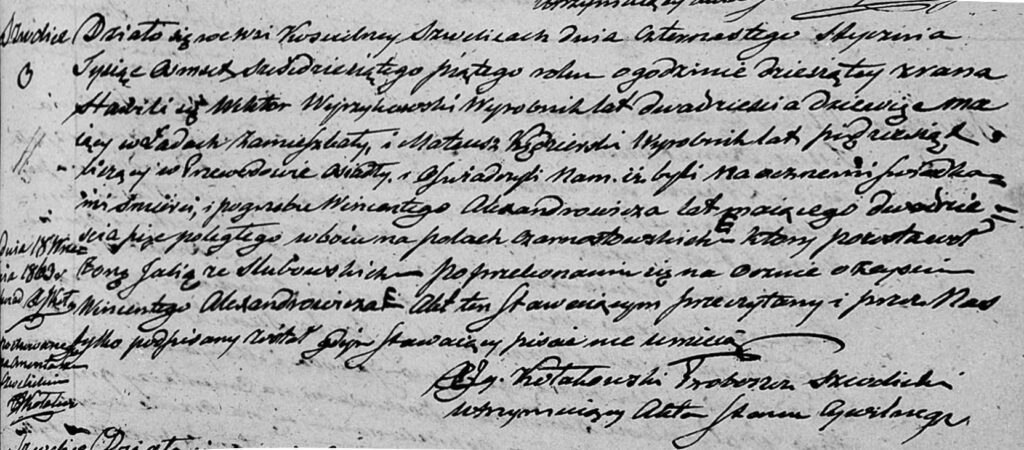 utrzymujący
Szwelice Działo się we wsi Kościelney Szwelicach dnia czternastego Stycznia
3 Tysiąc Osmset sześdziesiątego piątego roku o godzinie dziesiątey zrana
Stawili się Wiktor Wyrzykowski Wyrobnik lat dwadzieścia dziewięć ma
iący w Ładach zamieszkały, i Mateusz Kędzierski Wyrobnik lat pięдziesiąt
liczący w Przewodowie osiadły, i Oświadczyli Nam, iż byli naocznemi świadka=
mi śmierci, i pogrzebu Wincentego Alexandrowicza lat maiącego dwadzie=
ścia pięć poległego w boiu na polach czarnostowskich który pozostawił
żonę Julią ze Słubowskich Po przekonaniu się na ocznie o zejściu
Wincentego Alexandrowicza Akt ten Stawaiącym przeczytany i przez Nas
tylko podpisany został gdyż Stawaiący pisać nie umieią
Kołakowski Proboszcz Szwelicki
utrzymuiący Akta Stanu Cywilnego
dnia 18
nia 1863 r
pochowany
na cmentarzu
Szwelickim
Działo